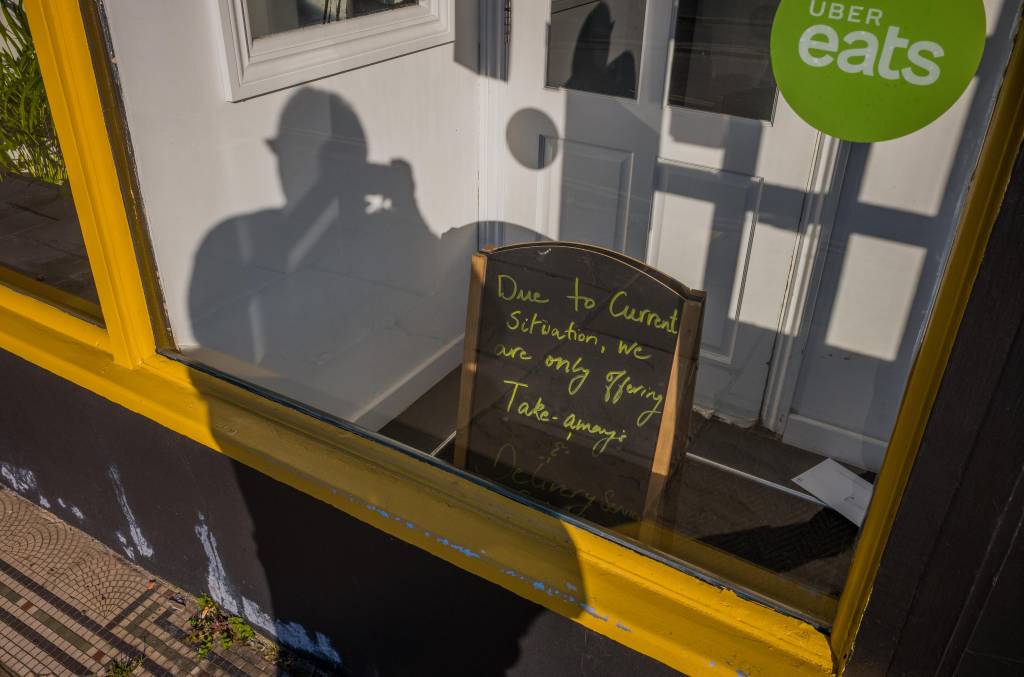 UBER
eats
Due to Current
Situation, we
are only offering
Take-aways
&
Delivery